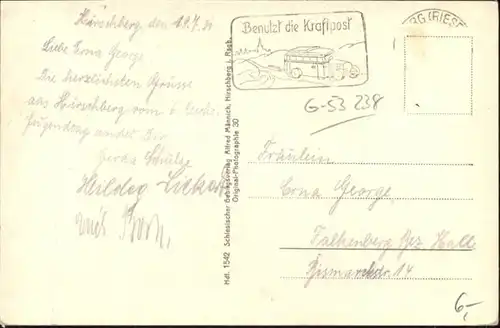 Hirschberg, den 18.7.31
Liebe Erna George
Die herzlichsten Grüsse
aus Hirschberg vom
Jugendtag sendet Dir
Gerda Schulze
Hildeg
Benutzt die Kraftpost
RG (RIESE
G-53 238
Hdl. 1542 Schlesischer Gebirgsverlag Alfred Männich, Hirschberg i. Rsgb.
Original-Photographie 30
Fräulein
Erna George
Falkenberg Bez. Halle
Bismarckstr. 14
6,-